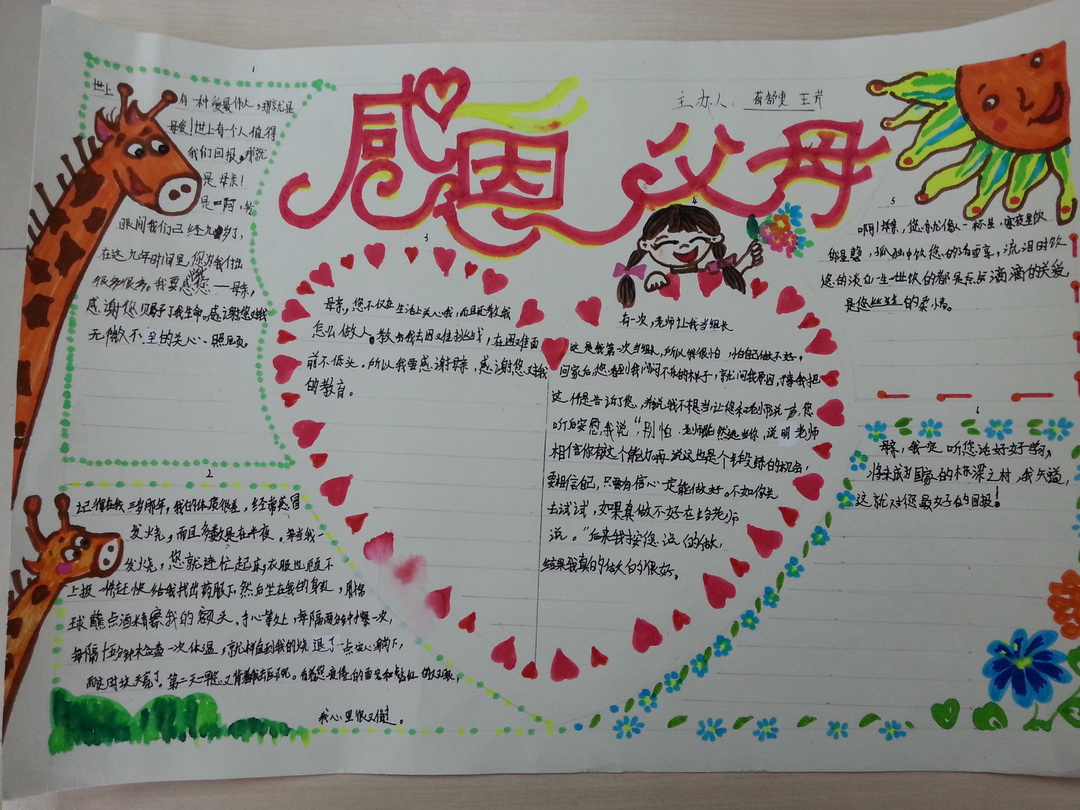 感恩父母
主办人：蒋舒雯 王芹
1
世上
有一种爱最伟大，那就是
母爱！世上有一个人值得
我们回报，那就
是母亲！
是啊，转
眼间我们已经九岁了，
在这九年时间里，您为我付出
很多很多。我要感恩您——母亲，
感谢您赐予了我生命。感谢您对我
无微不至的关心、照顾。
2
记得在我三岁那年，我的体质很差，经常感冒
发烧，而且多数是在半夜。每当我一
发烧，您就连忙起床，衣服也顾不
上披一件赶快给我找出药服下，然后坐在我的身边，用棉
球蘸点酒精擦我的额头、手心等处，每隔两分钟擦一次，
每隔十五分钟会查一次体温，就这样直到我的烧退了一点安心躺下，
而这时候天亮了。第二天早晨又背着我去医院。看着您疲倦的面容和
我心里很又难过。
3
母亲，您不仅在生活上关心我，而且还教我
怎么做人。教我去困难挑战，在困难面
前不低头。所以我要感谢母亲，感谢您对我
的教育。
4
有一次，老师让我当组长
这是我第一次当组长，所以我很怕，怕自己做不好。
回家后，您看到我闷闷不乐的样子，就问我原因，我把
这件是告诉了您，并说我不想当，让您和老师说一声，您
听后安慰我说“，别怕，老师既然选你，说明老师
相信你有这个能力啊，说这也是个锻炼的机会，
要相信自己，只要有信心一定能做好。不如你先
去试试，如果真做不好在给老师
说。”后来我按您说的做，
结果我真的做的很好。
5
啊！母亲，您就像一杯茶，家庭里饮
您是，孤独中饮您的，流泪时饮
您的淡立一生世饮的都是点点滴滴的关爱，
是您的柔情。
6
母亲，我一定听您话好好学习，
将来成为国家的栋梁之材，我知道
这就对您最好的回报！